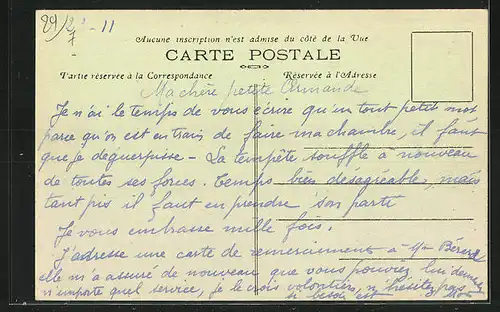 29/2 - 11
Aucune inscription n'est admise du côté de la Vue
CARTE POSTALE
Partie réservée à la Correspondance
Réservée à l'Adresse
Ma chère petite Armande
Je n'ai le temps de vous écrire qu'un tout petit mot
parce qu'on est en train de faire ma chambre, il faut
que je déguerpisse - La tempête souffle à nouveau
de toutes ses forces. Temps bien désagréable, mais
tant pis il faut en prendre son parti
Je vous embrasse mille fois.
J'adresse une carte de remerciement à Bérard
elle m'a assuré de nouveau que vous pouviez lui demander
n'importe quel service, je le crois volontiers, n'hésitez pas
si besoin est